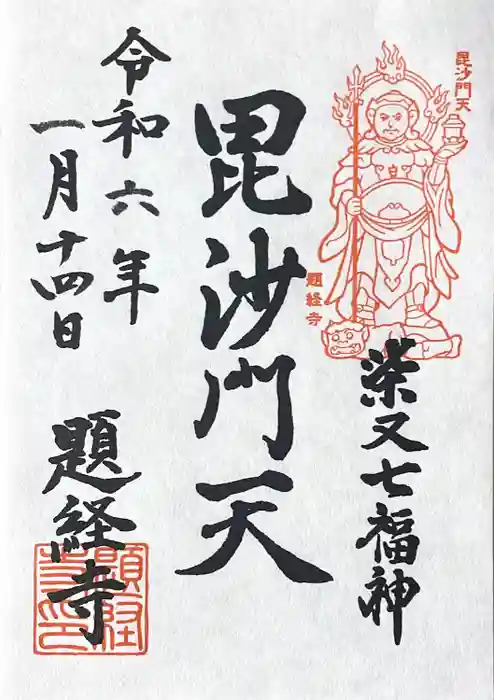 毘沙門天
題経寺
柴又七福神
毘沙門天
令和六年
一月十四日
題経寺
題経寺